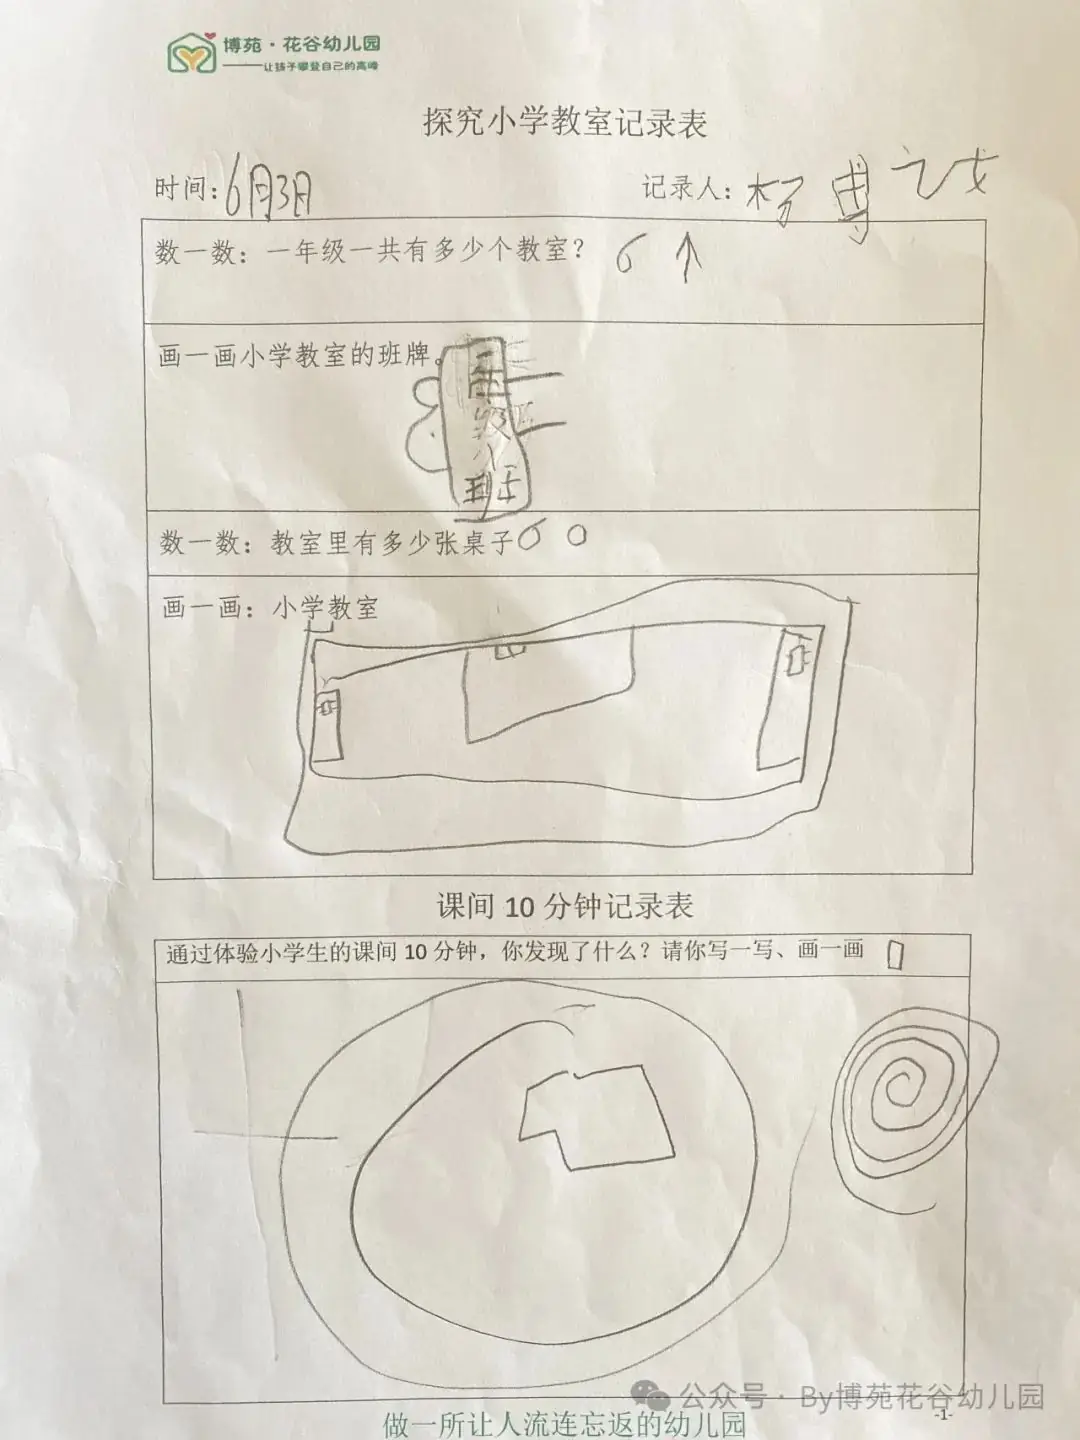 博苑·花谷幼儿园
——让孩子攀登自己的高峰
探究小学教室记录表
时间:6月3日
记录人: 杨博
数一数:一年级一共有多少个教室? 6个
画一画小学教室的班牌。
一年级
班
数一数:教室里有多少张桌子 60
画一画:小学教室
课间10分钟记录表
通过体验小学生的课间10分钟,你发现了什么?请你写一写、画一画
公众号·By博苑花谷幼儿园
做一所让人流连忘返的幼儿园
-1-